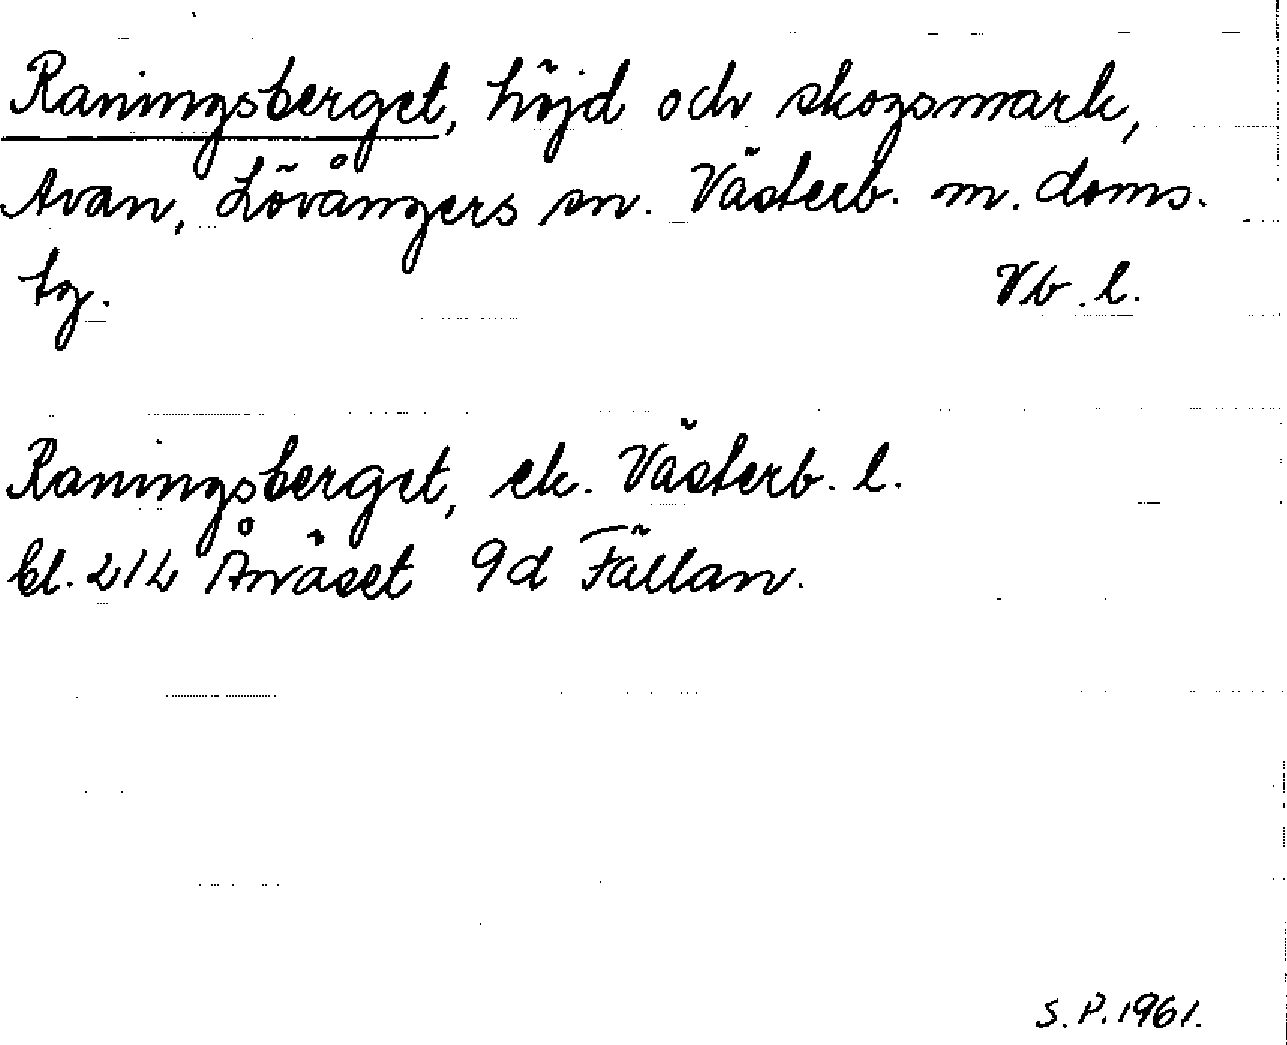 Raningsberget, höjd och skogsmark,
Avan, Lövångers sn. Västerb. m. doms.
tg. Vb. l.
Raningsberget, ek. Västerb. l.
bl. 212 Ånäset 9d Fällan.
S. P. 1961.